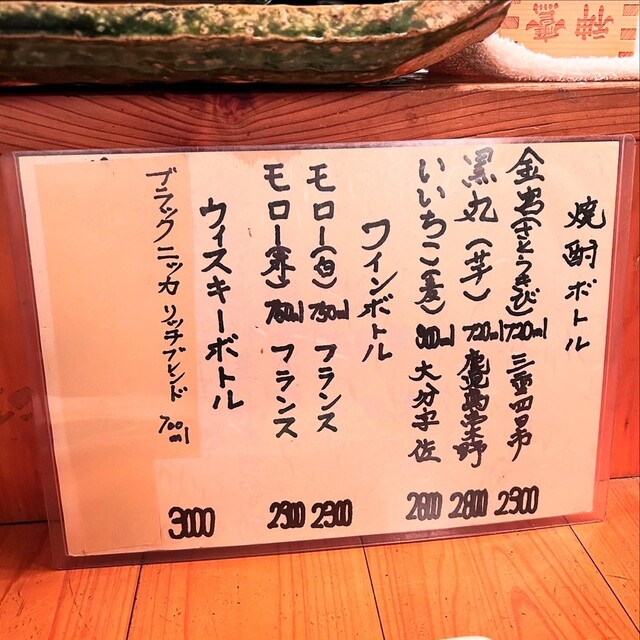 焼酎ボトル
金宮(さとうきび) 720ml 三重四日市 2900
黒丸(芋) 720ml 鹿児島 2800
いいちこ(麦) 900ml 大分宇佐 2800
ワインボトル
モロー(白) 750ml フランス 2900
モロー(赤) 750ml フランス 2900
ウィスキーボトル
ブラックニッカ リッチブレンド 700ml 3000